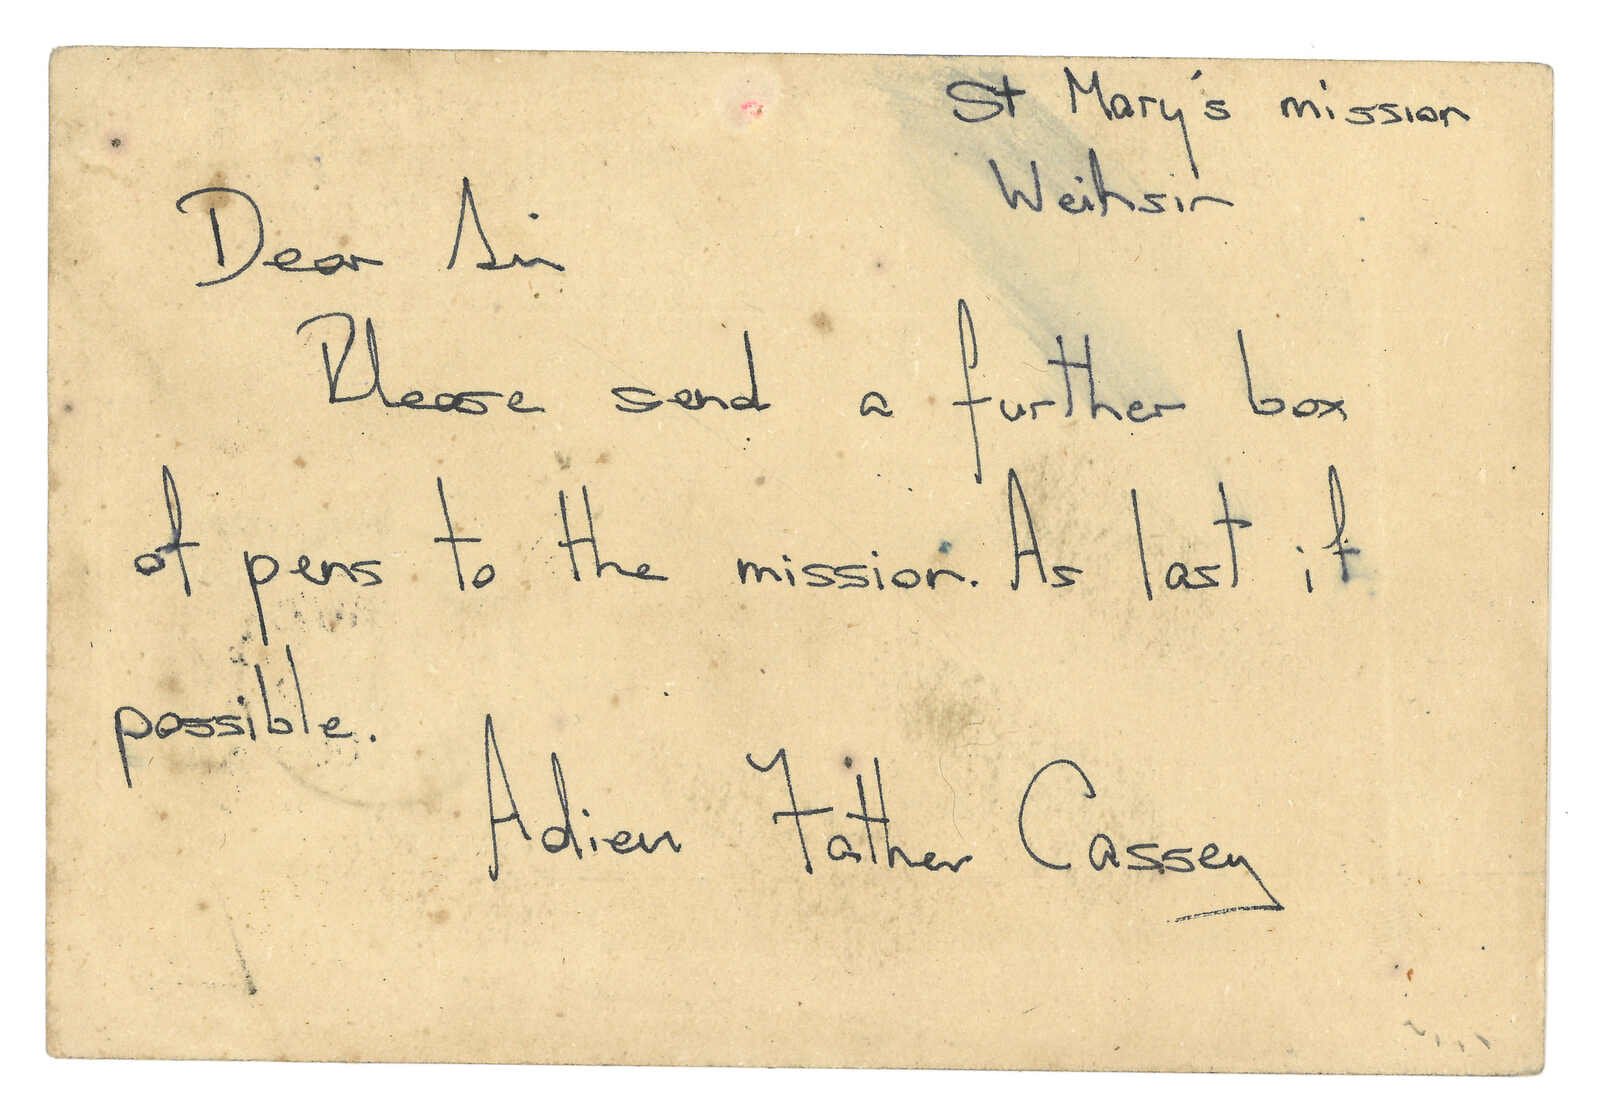 St Mary's mission
Weihsin
Dear Sir
Please send a further box
of pens to the mission. As last if
possible.
Adrien Father Cassey